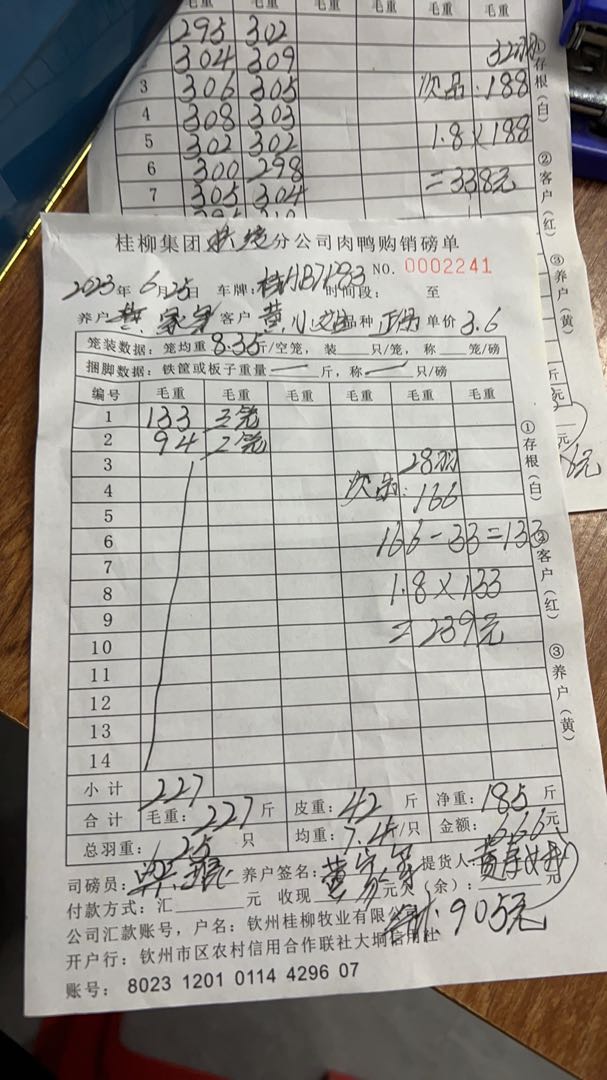 毛重 毛重 毛重 毛重 毛重 毛重
295 302
304 309
3 306 305 次品:188
4 308 303
5 302 302 1.8×188
6 300 298 =338元
7 305 304
①存根(白) ②客户(红) ③养户(黄)
桂柳集团 分公司肉鸭购销磅单
NO. 0002241
2023年6月25日 车牌: 时间段: 至
养户 客户 品种 正品 单价 3.6
笼装数据:笼均重 8.35斤/空笼,装 只/笼,称 笼/磅
捆脚数据:铁筐或板子重量 — 斤,称 — 只/磅
编号 毛重 毛重 毛重 毛重 毛重 毛重
1 133 3笼
2 94 2笼
3 28羽
4 次品:166
5
6 166-33=133
7
8 1.8×133
9 =239元
10
11
12
13
14
小计 227
合计 毛重:227斤 皮重:42斤 净重:185斤
总羽重:25只 均重:7.4斤/只 金额:666元
司磅员: 养户签名: 提货人:
付款方式:汇 元 收现 元欠(余): 元
公司汇款账号,户名:钦州桂柳牧业有限公司 905元
开户行:钦州市区农村信用合作联社大垌信用社
账号:8023 1201 0114 4296 07
①存根(白) ②客户(红) ③养户(黄)